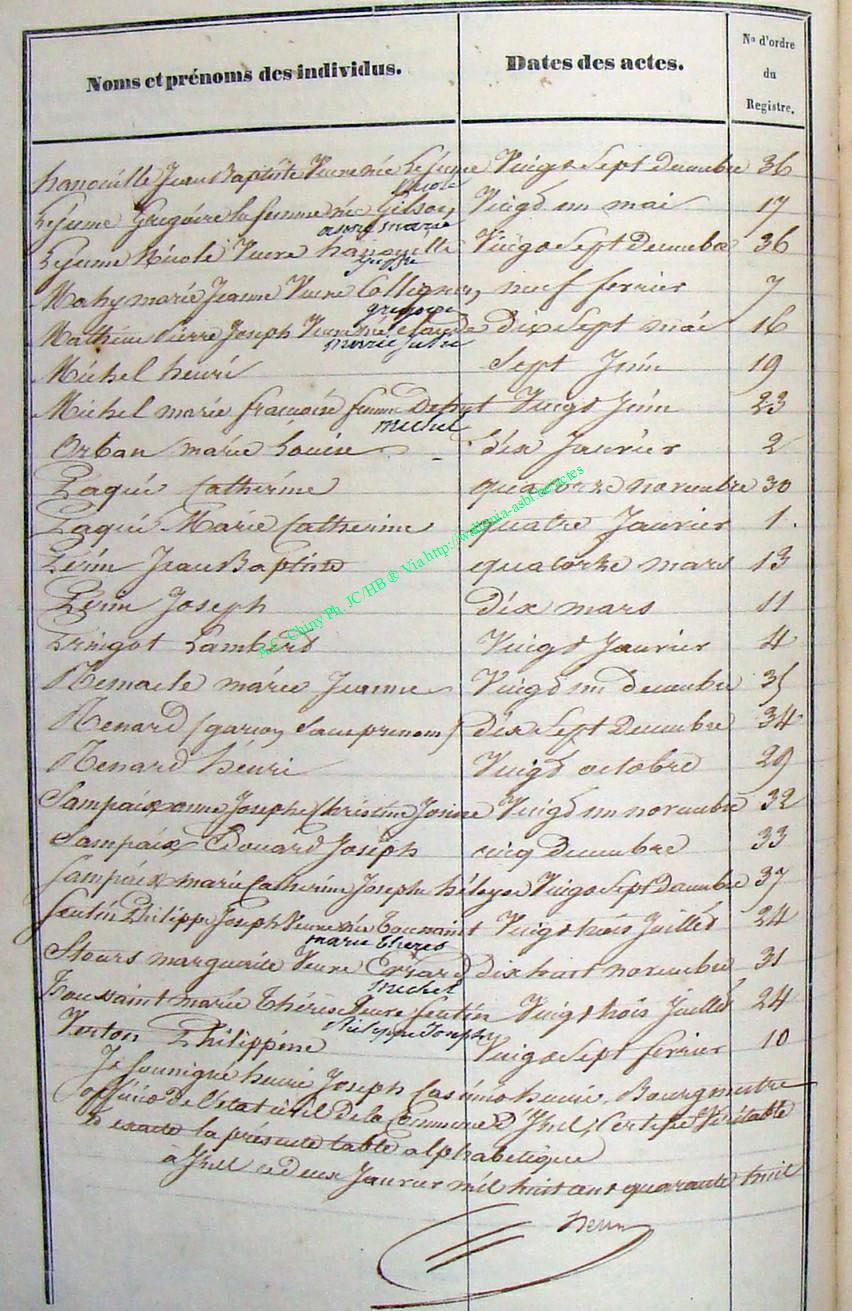 Noms et prénoms des individus. Dates des actes. N° d'ordre du Registre.
hanouille Jean Baptiste Veuve née Lejeune Vingt Sept decembre 36
Nicole
Lejeune Gregoire la femme née Gilson Vingt un mai 17
anne marie
Lejeune Nicole Veuve hanouille Vingt Sept Decembre 36
Mahy marie Jeanne Veuve Collignon neuf fevrier 7
gregoire
Mathieu Pierre Joseph Veuve née Claude dix Sept mai 16
marie Julie
Michel henri Sept Juin 19
Michel marie francoise femme Vingt Juin 23
michel
Orban marie Louise dix Janvier 2
Paquet Catherine quatorze novembre 30
Paqué Marie Catherine quatre Janvier 1.
Perin Jean Baptiste quatorze mars 13
Perin Joseph dix mars 11
Pringot Lambert Vingt Janvier 4
Remacle marie Jeanne Vingt un decembre 35
Renard (garcon Sans prenom) dix Sept Decembre 34
Renard henri Vingt octobre 29
Sampaix anne Josephe Christine Vingt un novembre 32
Sampaix Edouard Joseph cinq Decembre 33
Sampaix marie Catherine Josephe Vingt Sept Decembre 37
Seutin Philippe Joseph Veuve née Toussaint Vingt trois Juillet 24
marie Therese
Stours marguerite Veuve Evrard dix huit novembre 31
michel
Toussaint marie Thérèse Veuve Seutin Vingt trois Juillet 24
Philippe Joseph
Verton Philippine Vingt Sept fevrier 10
Je Sousigné henri Joseph Casimir Bourgmestre
officier de l'etat civil de la Commune d'Izel, Certifie Veritable
et exacte la présente table alphabetique
a Izel ce deux Janvier mil huit cent quarante huit
A.C. Chiny Ph. JC/HB ® Via http://wallonia-asbl.be/actes